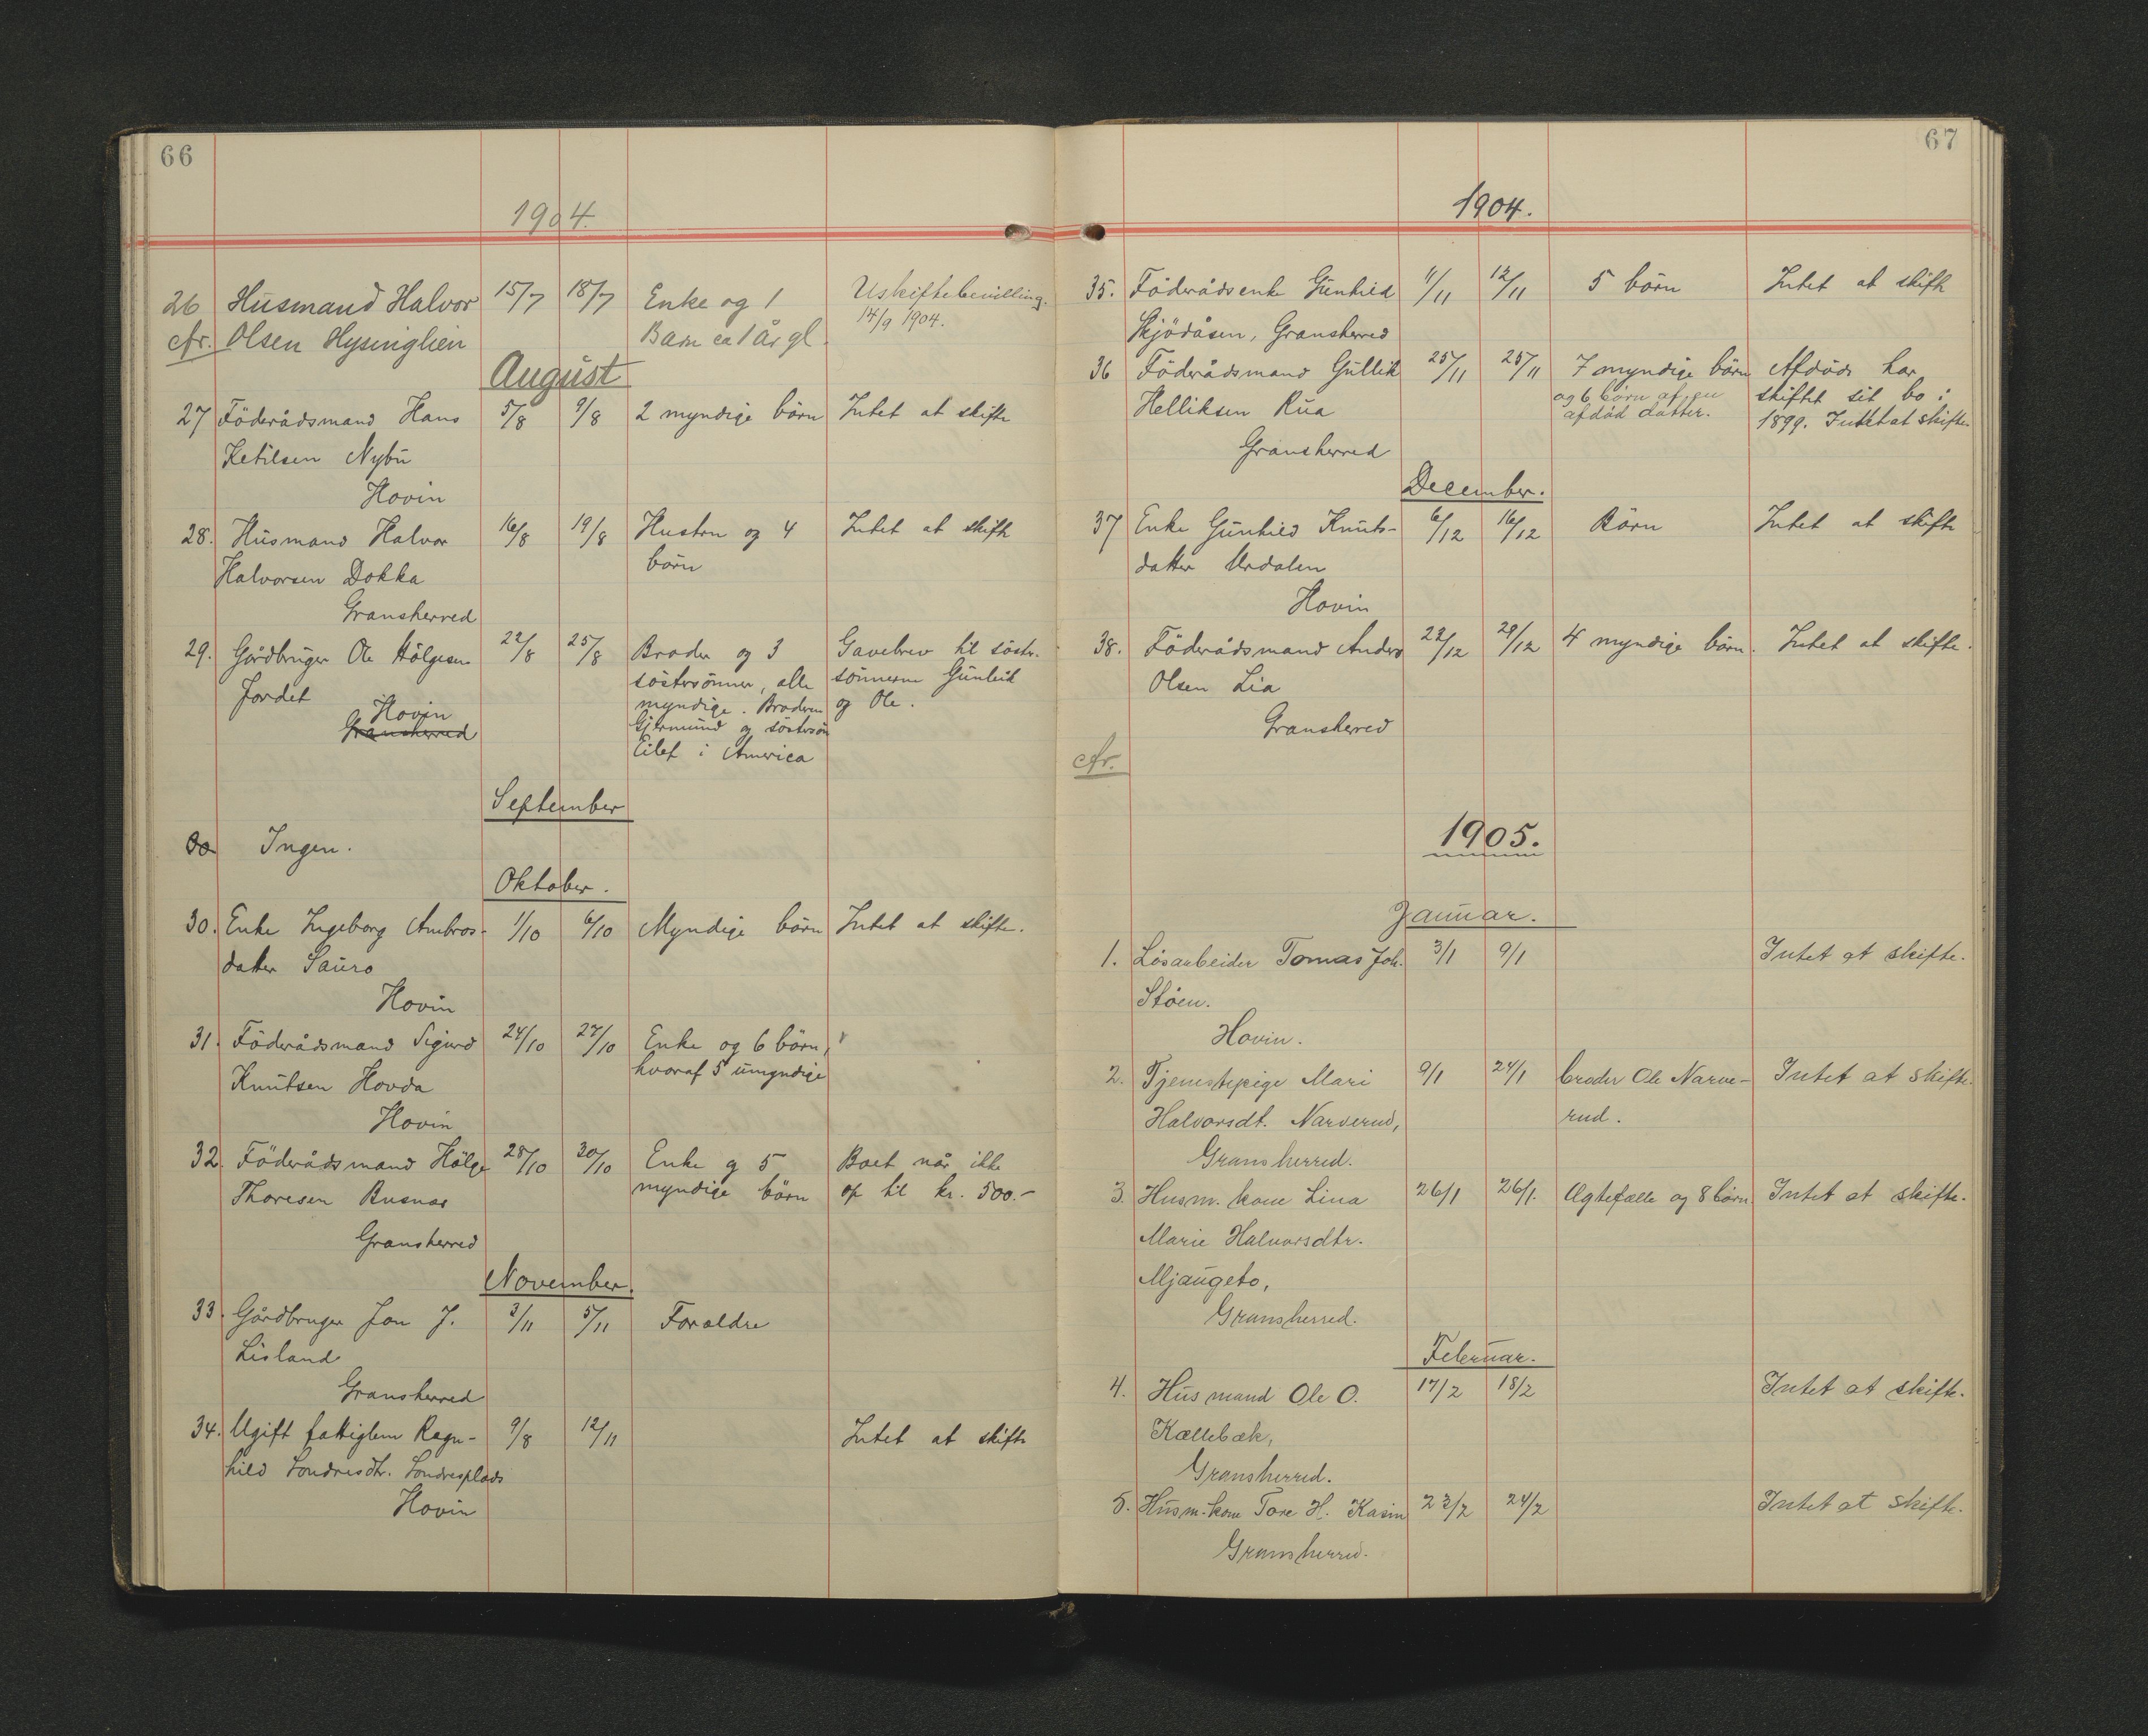 66
1904.
26 Husmand Halvor 15/7 18/7 Enke og 1 Uskiftebevilling.
Ar. Olsen Hysinglien Barn ca 1 år gl. 14/9 1904.
August
27 Föderådsmand Hans 5/8 9/8 2 myndige börn Intet at skifte
Ketilsen Nybu
Hovin
28. Husmand Halvor 16/8 19/8 Hustru og 4 Intet at skifte
Halvorsen Dokka börn
Gransherred
29. Gårdbruger Ole Hölgesen 22/8 25/8 Broder og 3 Gavebrev til söster-
Jordet söstersönner, alle sönnerne Gunleik
Hovin myndige. Broderen og Ole.
Gransherred Gjermund og söstersön
Eilef i America
September
Ingen.
Oktober.
30. Enke Ingeborg Ambros- 1/10 6/10 Myndige börn Intet at skifte.
datter Sauro
Hovin
31. Föderådsmand Sigurd 24/10 27/10 Enke og 6 börn,
Knutsen Hovda hvoraf 5 umyndige
Hovin
32. Föderådsmand Hölge 28/10 30/10 Enke og 5 Boet når ikke
Thoresen Busnes myndige börn op til kr. 500.-
Gransherred
November.
33. Gårdbruger Jon J. 3/11 5/11 Foraldre
Lisland
Gransherred
34. Ugift fattiglem Ragn- 9/8 12/11 Intet at skifte
hild Sondresdtr. Sondresplads
Hovin
67
1904.
35. Föderådsenke Gunhild 11/11 12/11 5 börn Intet at skifte
Skjödåsen, Gransherred
36 Föderådsmand Gullik 25/11 25/11 7 myndige börn Afdöde har
Helliksen Rua og 6 börn af en skiftet sit bo i
afdöd datter. 1899. Intet at skifte.
Gransherred
December.
37 Enke Gunhild Knuts- 6/12 16/12 Börn Intet at skifte
datter Urdalen
Hovin
38. Föderådsmand Anders 22/12 29/12 4 myndige börn. Intet at skifte.
Olsen Lia
Gransherred
Ar.
1905.
Januar.
1. Lösarbeider Tomas Joh. 3/1 9/1 Intet at skifte.
Stöen.
Hovin.
2. Tjenestepige Mari 9/1 24/1 broder Ole Narve- Intet at skifte.
Halvorsdt. Narverud, rud.
Gransherred.
3. Husm. kone Lina 26/1 26/1. Ægtefælle og 8 börn. Intet at skifte.
Marie Halvorsdtr.
Mjaugeto,
Gransherred.
Februar.
4. Husmand Ole O. 17/2 18/2 Intet at skifte.
Kællebæk,
Gransherred.
5. Husm.-kone Tone H. Kasin 23/2 24/2 Intet at skifte.
Gransherred.